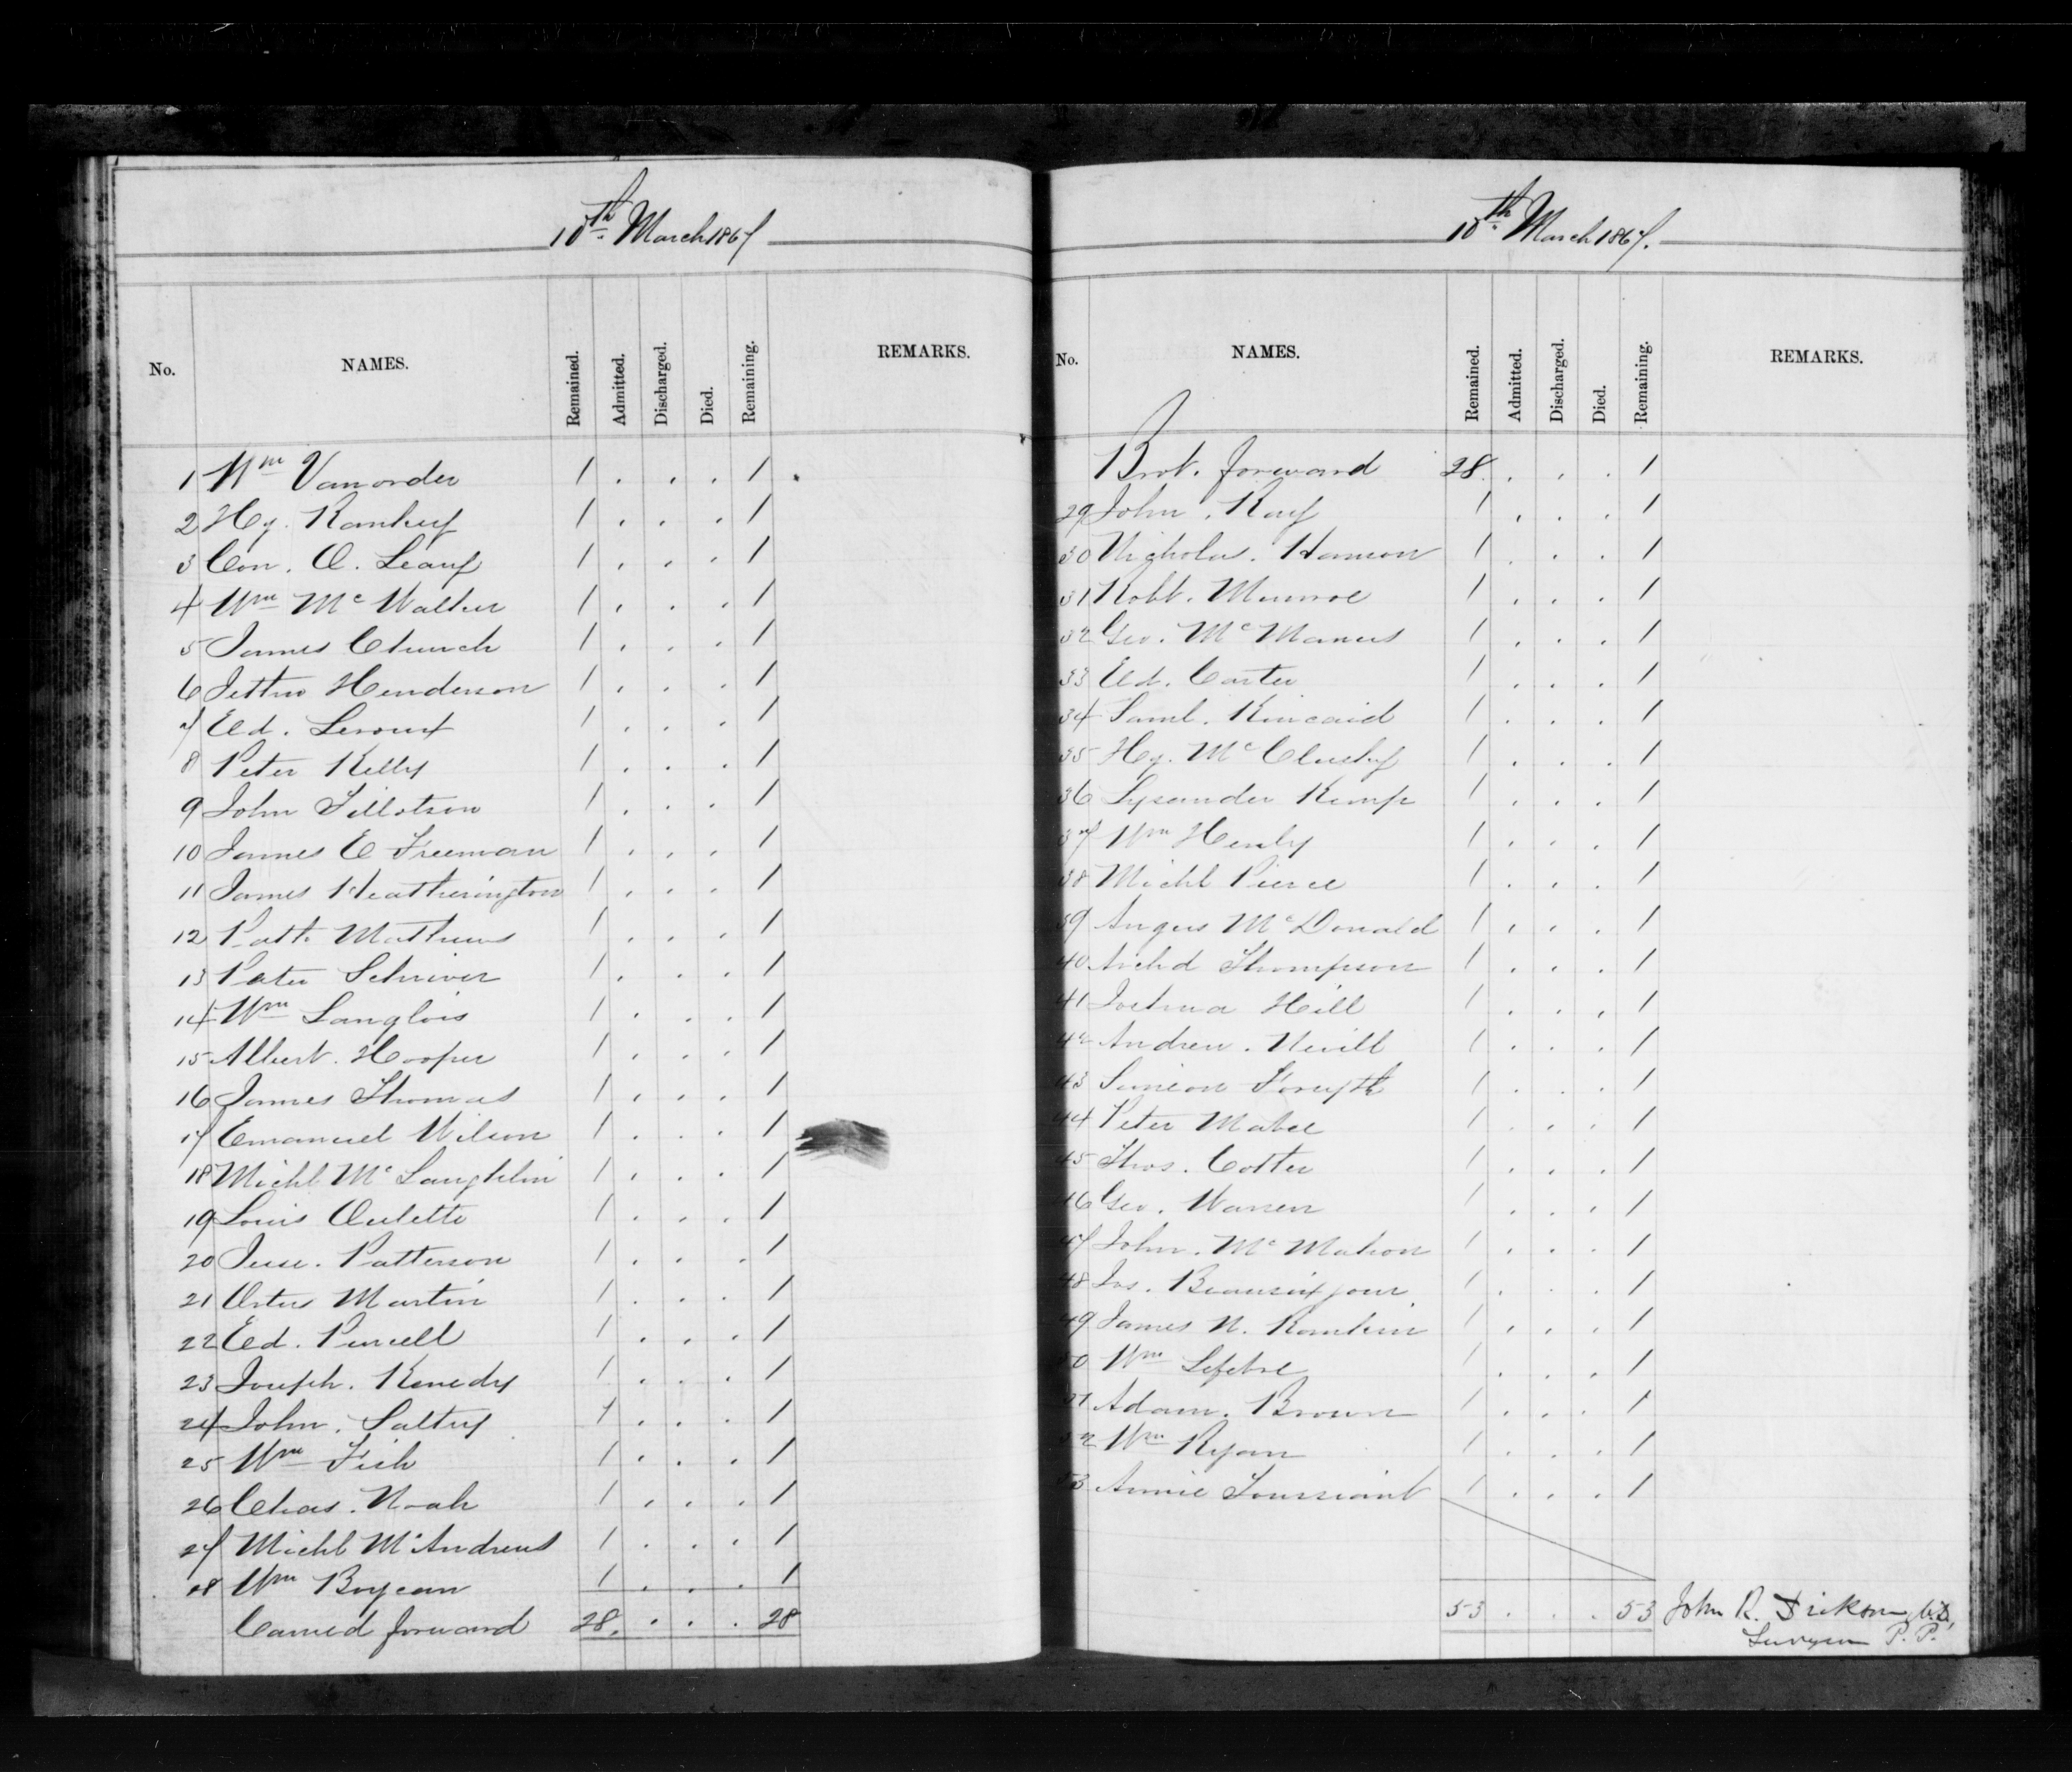 10th. March 1867
No. NAMES. Remained. Admitted. Discharged. Died. Remaining. REMARKS.
1 Wm Vanorder 1 . . . 1
2 Hy. Rankey 1 . . . 1
3 Con. O. Leary 1 . . . 1
4 Wm McWalter 1 . . . 1
5 James Church 1 . . . 1
6 Jethro Henderson 1 . . . 1
7 Ed. Leroux 1 . . . 1
8 Peter Kelly 1 . . . 1
9 John Tillotson 1 . . . 1
10 James E Freeman 1 . . . 1
11 James Heatherington 1 . . . 1
12 Patk Mathews 1 . . . 1
13 Peter Schriver 1 . . . 1
14 Wm Langlois 1 . . . 1
15 Albert. Hooper 1 . . . 1
16 James Thomas 1 . . . 1
17 Emanuel Wilson 1 . . . 1
18 Michl McLaughlin 1 . . . 1
19 Louis Oulette 1 . . . 1
20 Jesse. Patterson 1 . . . 1
21 Martin 1 . . . 1
22 Ed. Purcell 1 . . . 1
23 Joseph. Kenedy 1 . . . 1
24 John. Saltry 1 . . . 1
25 Wm Fish 1 . . . 1
26 Chas. Noah 1 . . . 1
27 Michl McAndrews 1 . . . 1
28 Wm Boyean 1 . . . 1
Carried forward 28. . . . 28
10th. March 1867.
No. NAMES. Remained. Admitted. Discharged. Died. Remaining. REMARKS.
Brot. forward 28. . . . 1
29 John. Ray 1 . . . 1
30 Nicholas. Hanson 1 . . . 1
31 Robt. Munroe 1 . . . 1
32 Geo. McManus 1 . . . 1
33 Ed. Carter 1 . . . 1
34 Saml. Kincaid 1 . . . 1
35 Hy. McClusky 1 . . . 1
36 Lysander Kemp 1 . . . 1
37 Wm Henly 1 . . . 1
38 Michl Pierce 1 . . . 1
39 Angus McDonald 1 . . . 1
40 Archd Thompson 1 . . . 1
41 Joshua Hill 1 . . . 1
42 Andrew. Nevill 1 . . . 1
43 Simeon Forsyth 1 . . . 1
44 Peter Mabee 1 . . . 1
45 Thos. Cotter 1 . . . 1
46 Geo. Warren 1 . . . 1
47 John. McMahon 1 . . . 1
48 Jos. Beausejour 1 . . . 1
49 James N. Rankin 1 . . . 1
50 Wm Lefebre 1 . . . 1
51 Adam. Brown 1 . . . 1
52 Wm Ryan 1 . . . 1
53 Annie Toussiant 1 . . . 1
53 . . . 53 John R. Dickson, M.D,
Surgeon P. P.